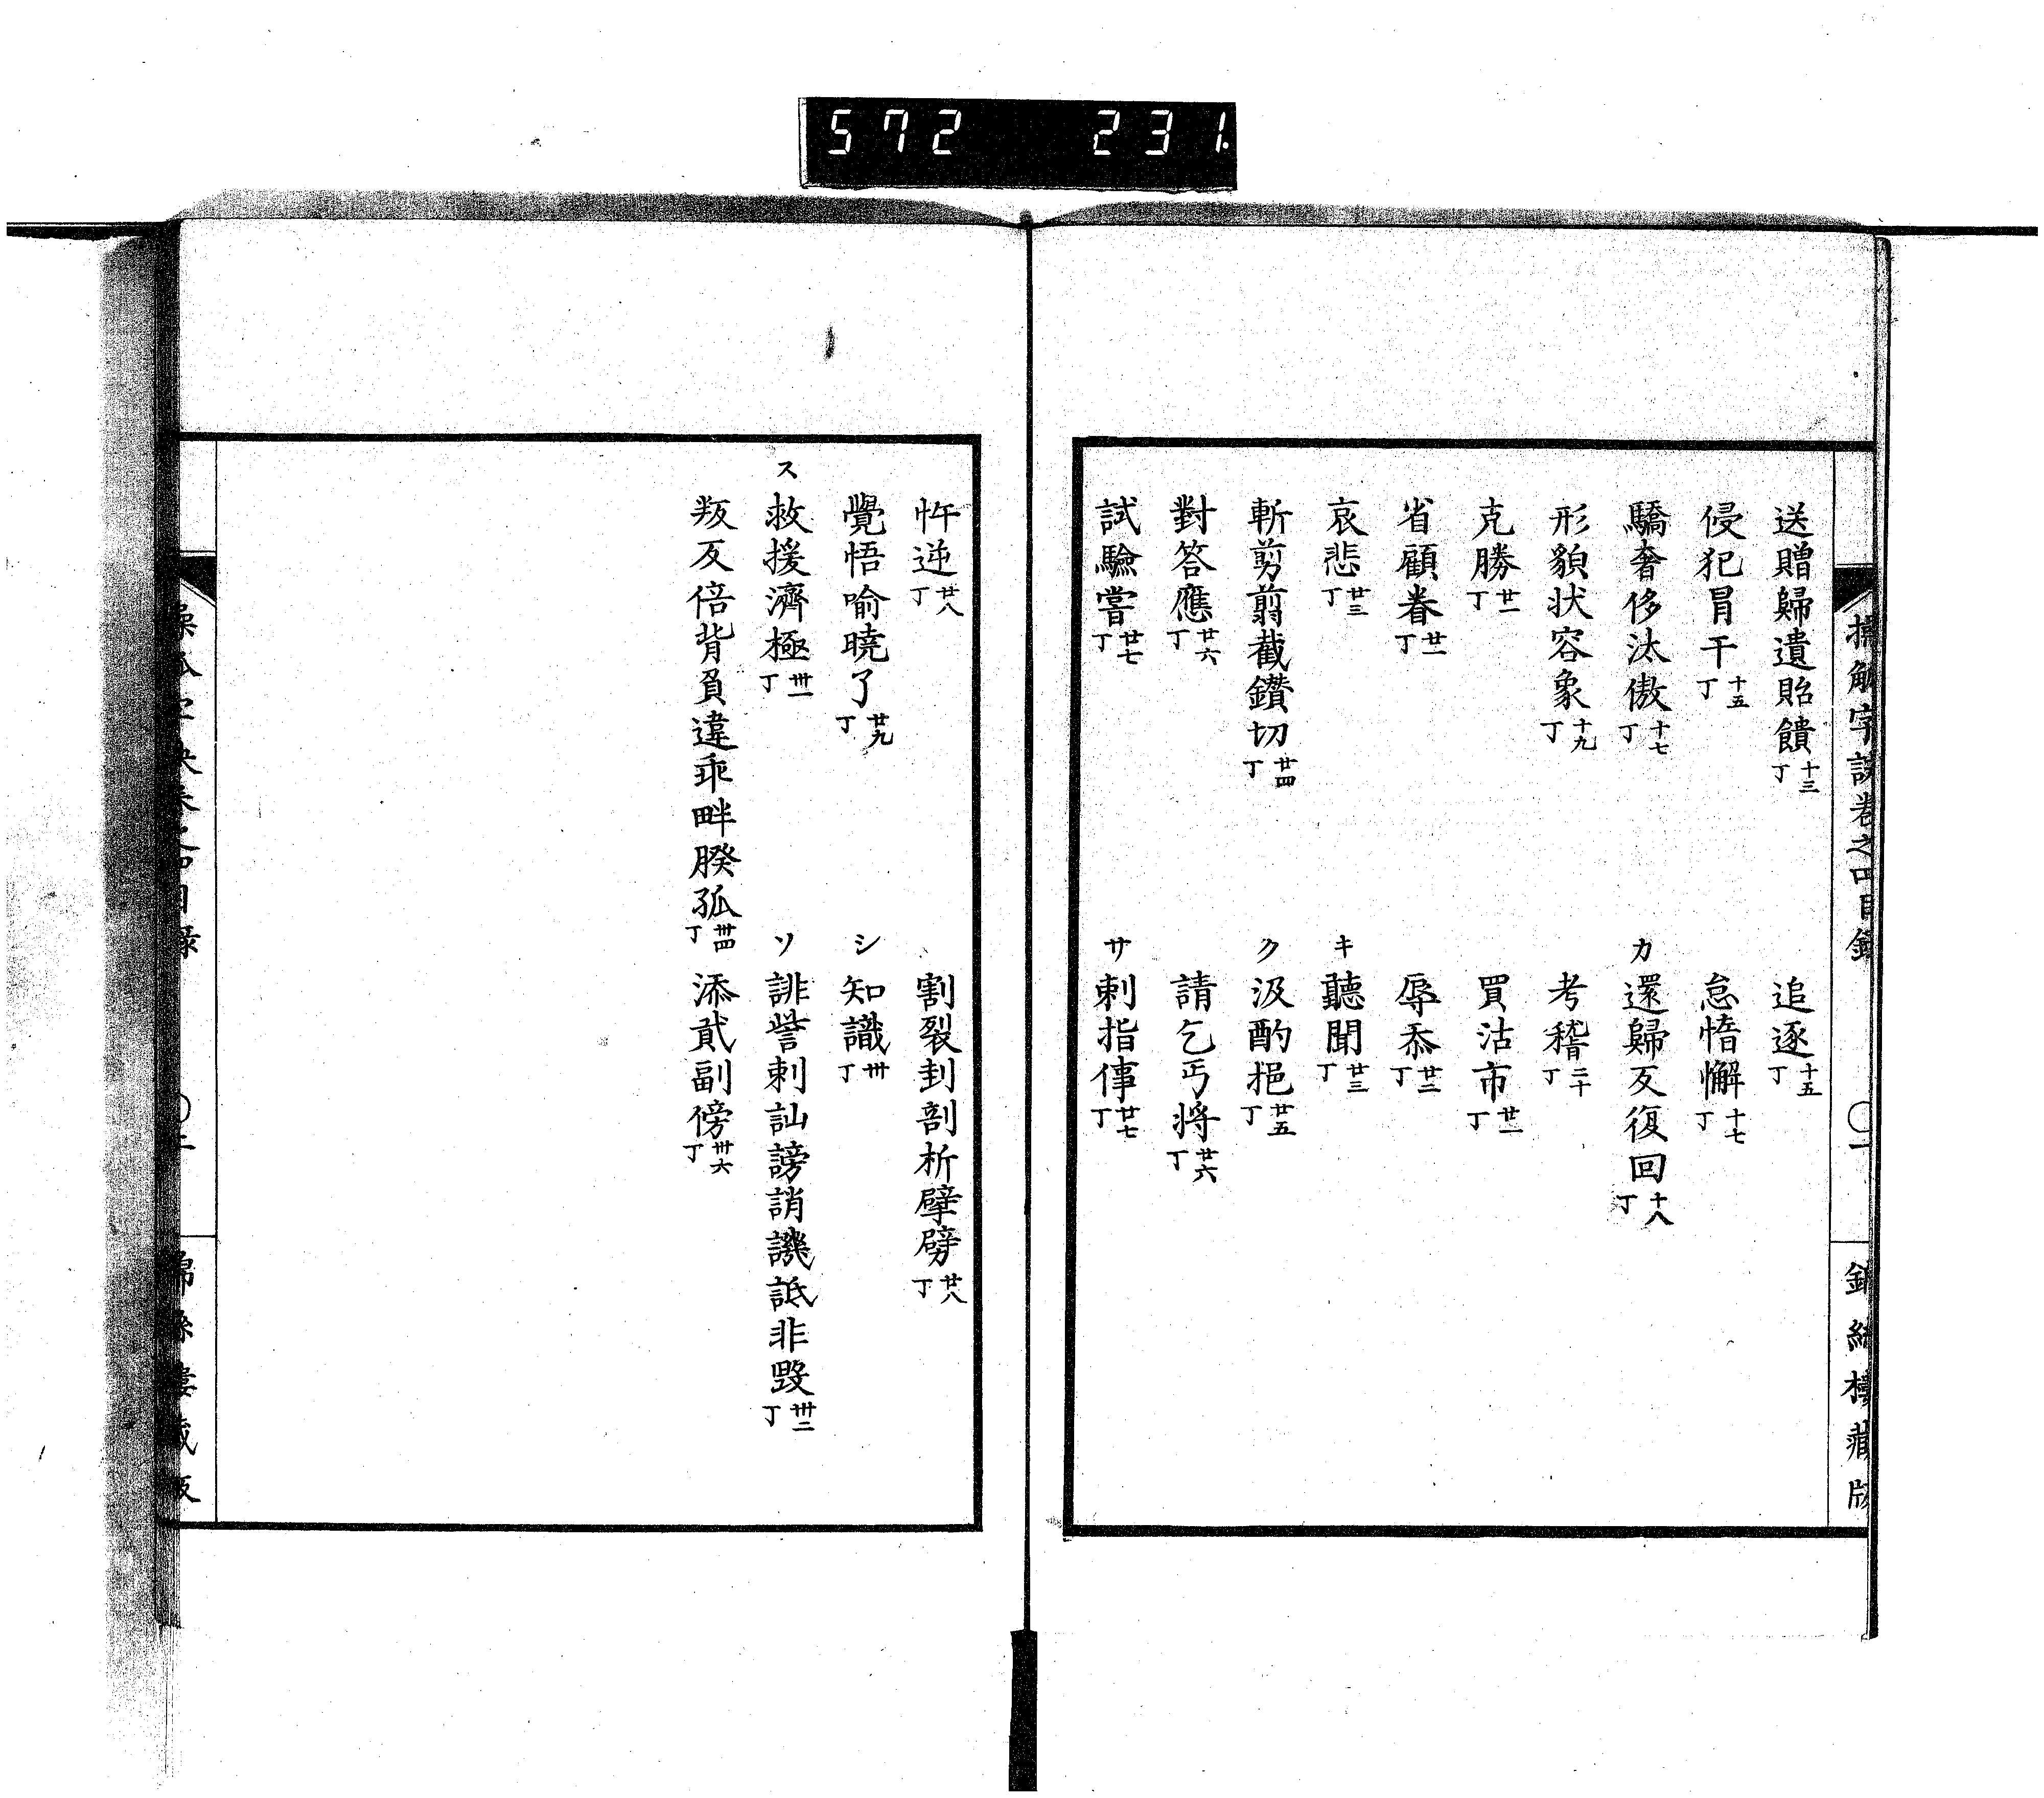 572 231.
操觚字訣卷之四目錄 〇一 錦絲樓藏版
送贈歸遺貽饋十三丁
追逐十五丁
侵犯冒干十五丁
怠惰懈十七丁
驕奢侈汰傲十七丁
カ 還歸反復回十八丁
形貌状容象十九丁
考稽二十丁
克勝廿一丁
買沽市廿一丁
省顧眷廿一丁
辱忝廿二丁
哀悲廿三丁
キ 聽聞廿三丁
斬剪翦截鑽切廿四丁
ク 汲酌挹廿五丁
對答應廿六丁
請乞丐将廿六丁
試驗嘗廿七丁
サ 刺指倳廿七丁
忤逆廿八丁
割裂刲剖析擘劈廿八丁
覺悟喻曉了廿九丁
シ 知識卅丁
ス 救援濟極卅一丁
ソ 誹訾刺訕謗誚譏詆非毀卅二丁
叛反倍背負違乖畔睽孤卅四丁
添貳副傍卅六丁
操觚字訣卷之四目錄 〇二 錦絲樓藏版